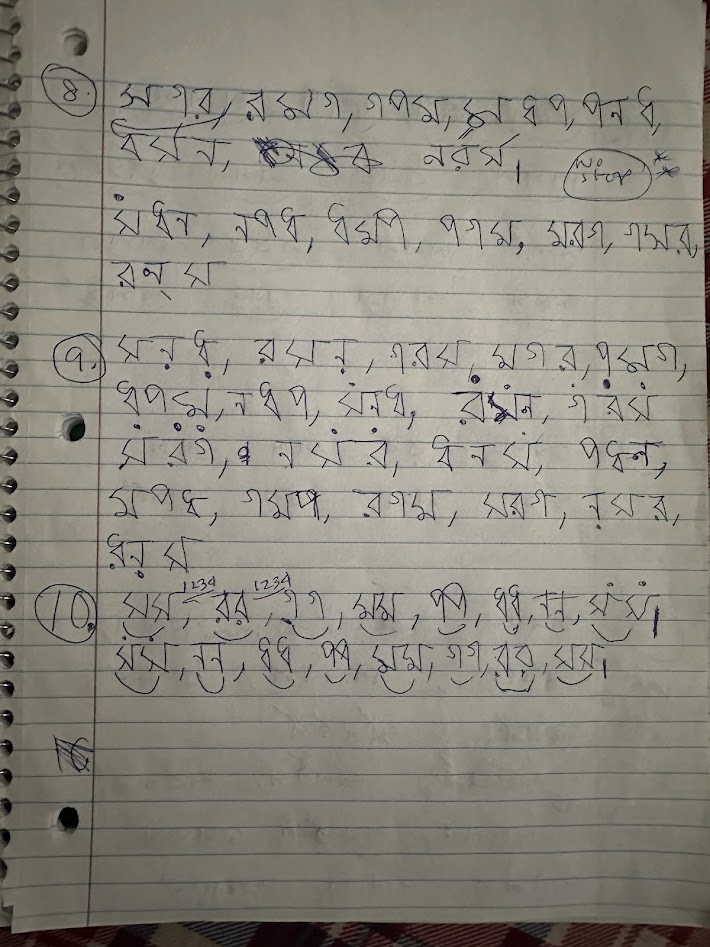 8. সগর, রমগ, গপম, মধপ, পনধ,
ধসন, নরস। NO STOP **
সধন, নপধ, ধমপ, পগম, মরগ, গসর,
রন্স
9. সন়ধ়, রসন়, গরস, মগর, পমগ,
ধপম, নধপ, সনধ, রসন, গরস
সরগ, নসর, ধনস, পধন,
মপধ, গমপ, রগম, সরগ, ন়সর,
ধ়ন়স
1234 1234
10. সস, রর, গগ, মম, পপ, ধধ, নন, সস।
সস, নন, ধধ, পপ, মম, গগ, রর, সস।